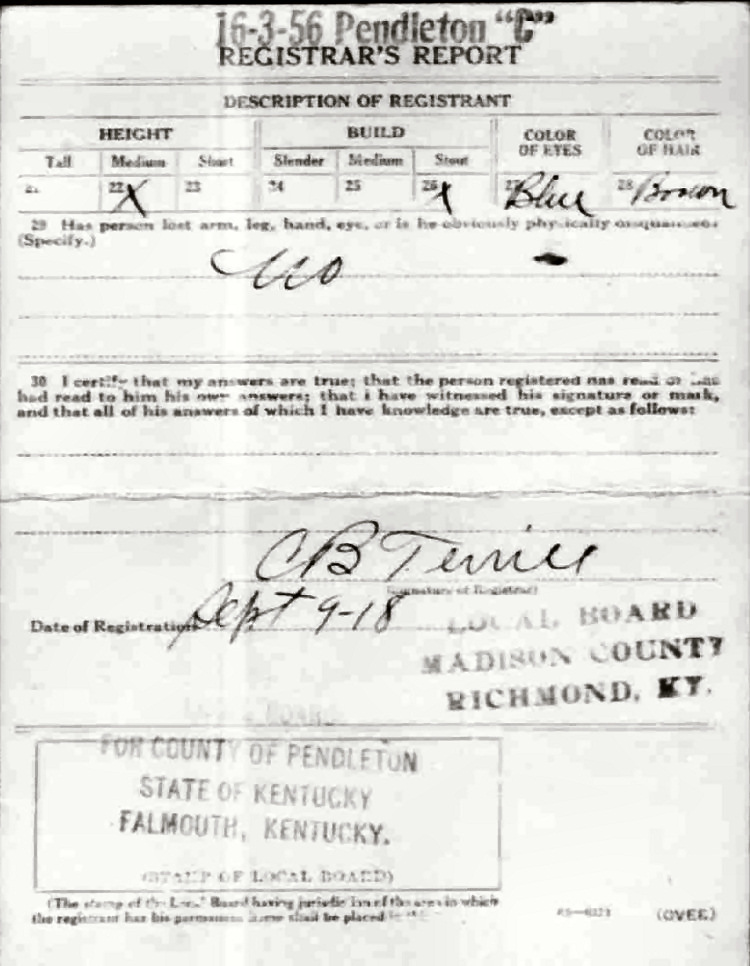 16-3-56 Pendleton "C"
REGISTRAR'S REPORT
DESCRIPTION OF REGISTRANT
HEIGHT BUILD COLOR OF EYES COLOR OF HAIR
Tall Medium Short Slender Medium Stout
21 22 X 23 24 25 26 X 27 Blue 28 Brown
29 Has person lost arm, leg, hand, eye, or is he obviously physically
(Specify.)
No
30 I certify that my answers are true; that the person registered has read or has
had read to him his own answers; that I have witnessed his signature or mark,
and that all of his answers of which I have knowledge are true, except as follows:
C B Terrill
(Signature of Registrar)
Date of Registration Sept 9-18
LOCAL BOARD
MADISON COUNTY
RICHMOND, KY.
FOR COUNTY OF PENDLETON
STATE OF KENTUCKY
FALMOUTH, KENTUCKY.
(STAMP OF LOCAL BOARD)
(The stamp of the Local Board having jurisdiction of the area in which
the registrant has his permanent home shall be placed
(OVER)